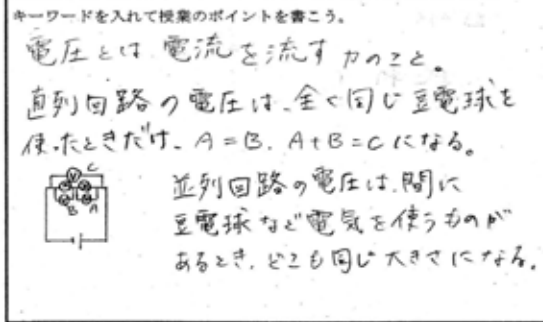 キーワードを入れて授業のポイントを書こう。
電圧とは 電流を流す力のこと。
直列回路の電圧は、全く同じ豆電球を
使ったときだけ、A=B、A+B=Cになる。
C
V
B A
並列回路の電圧は、間に
豆電球など電気を使うものが
あるとき、どこも同じ大きさになる。